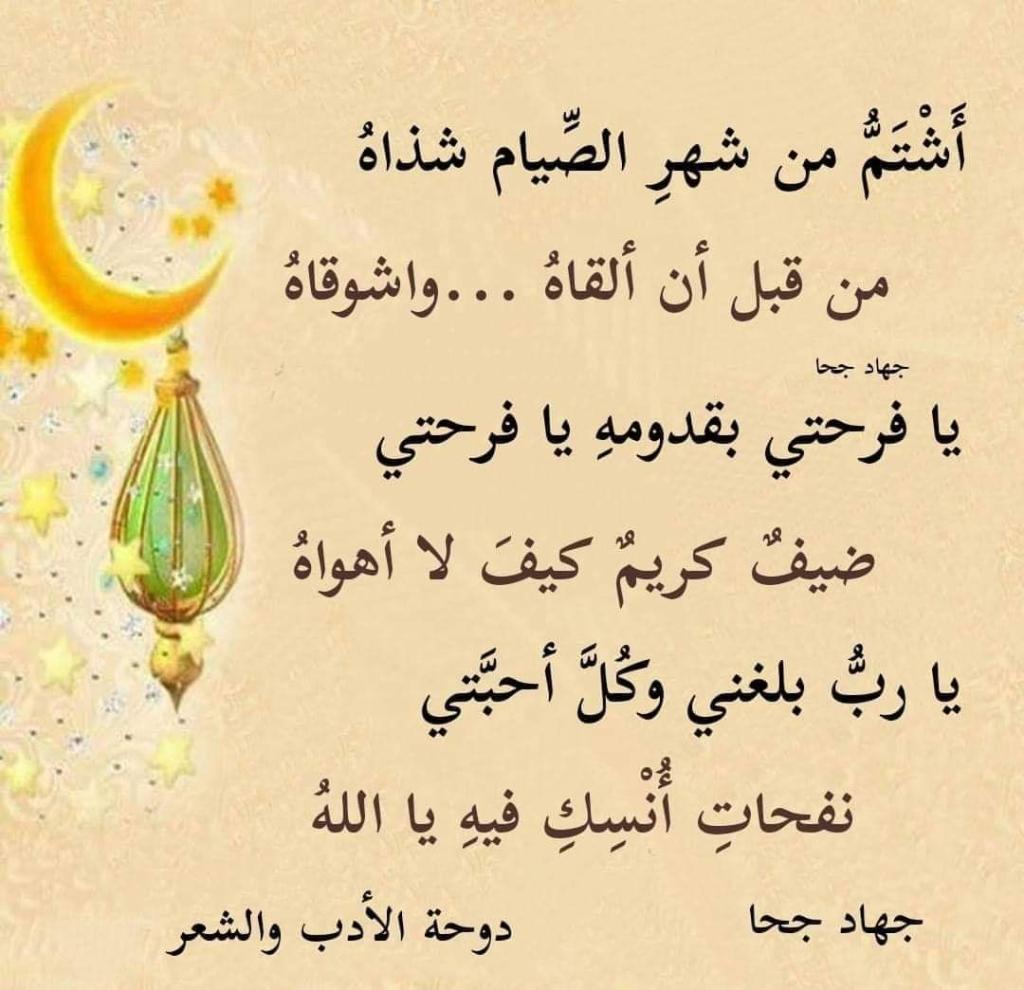 أَشْتَمُّ من شهرِ الصِّيام شذاهُ
من قبل أن ألقاهُ ...واشوقاهُ
جهاد جحا
يا فرحتي بقدومهِ يا فرحتي
ضيفٌ كريمٌ كيفَ لا أهواهُ
يا ربُّ بلغني وكُلَّ أحبَّتي
نفحاتِ أُنْسِكِ فيهِ يا اللهُ
جهاد جحا
دوحة الأدب والشعر